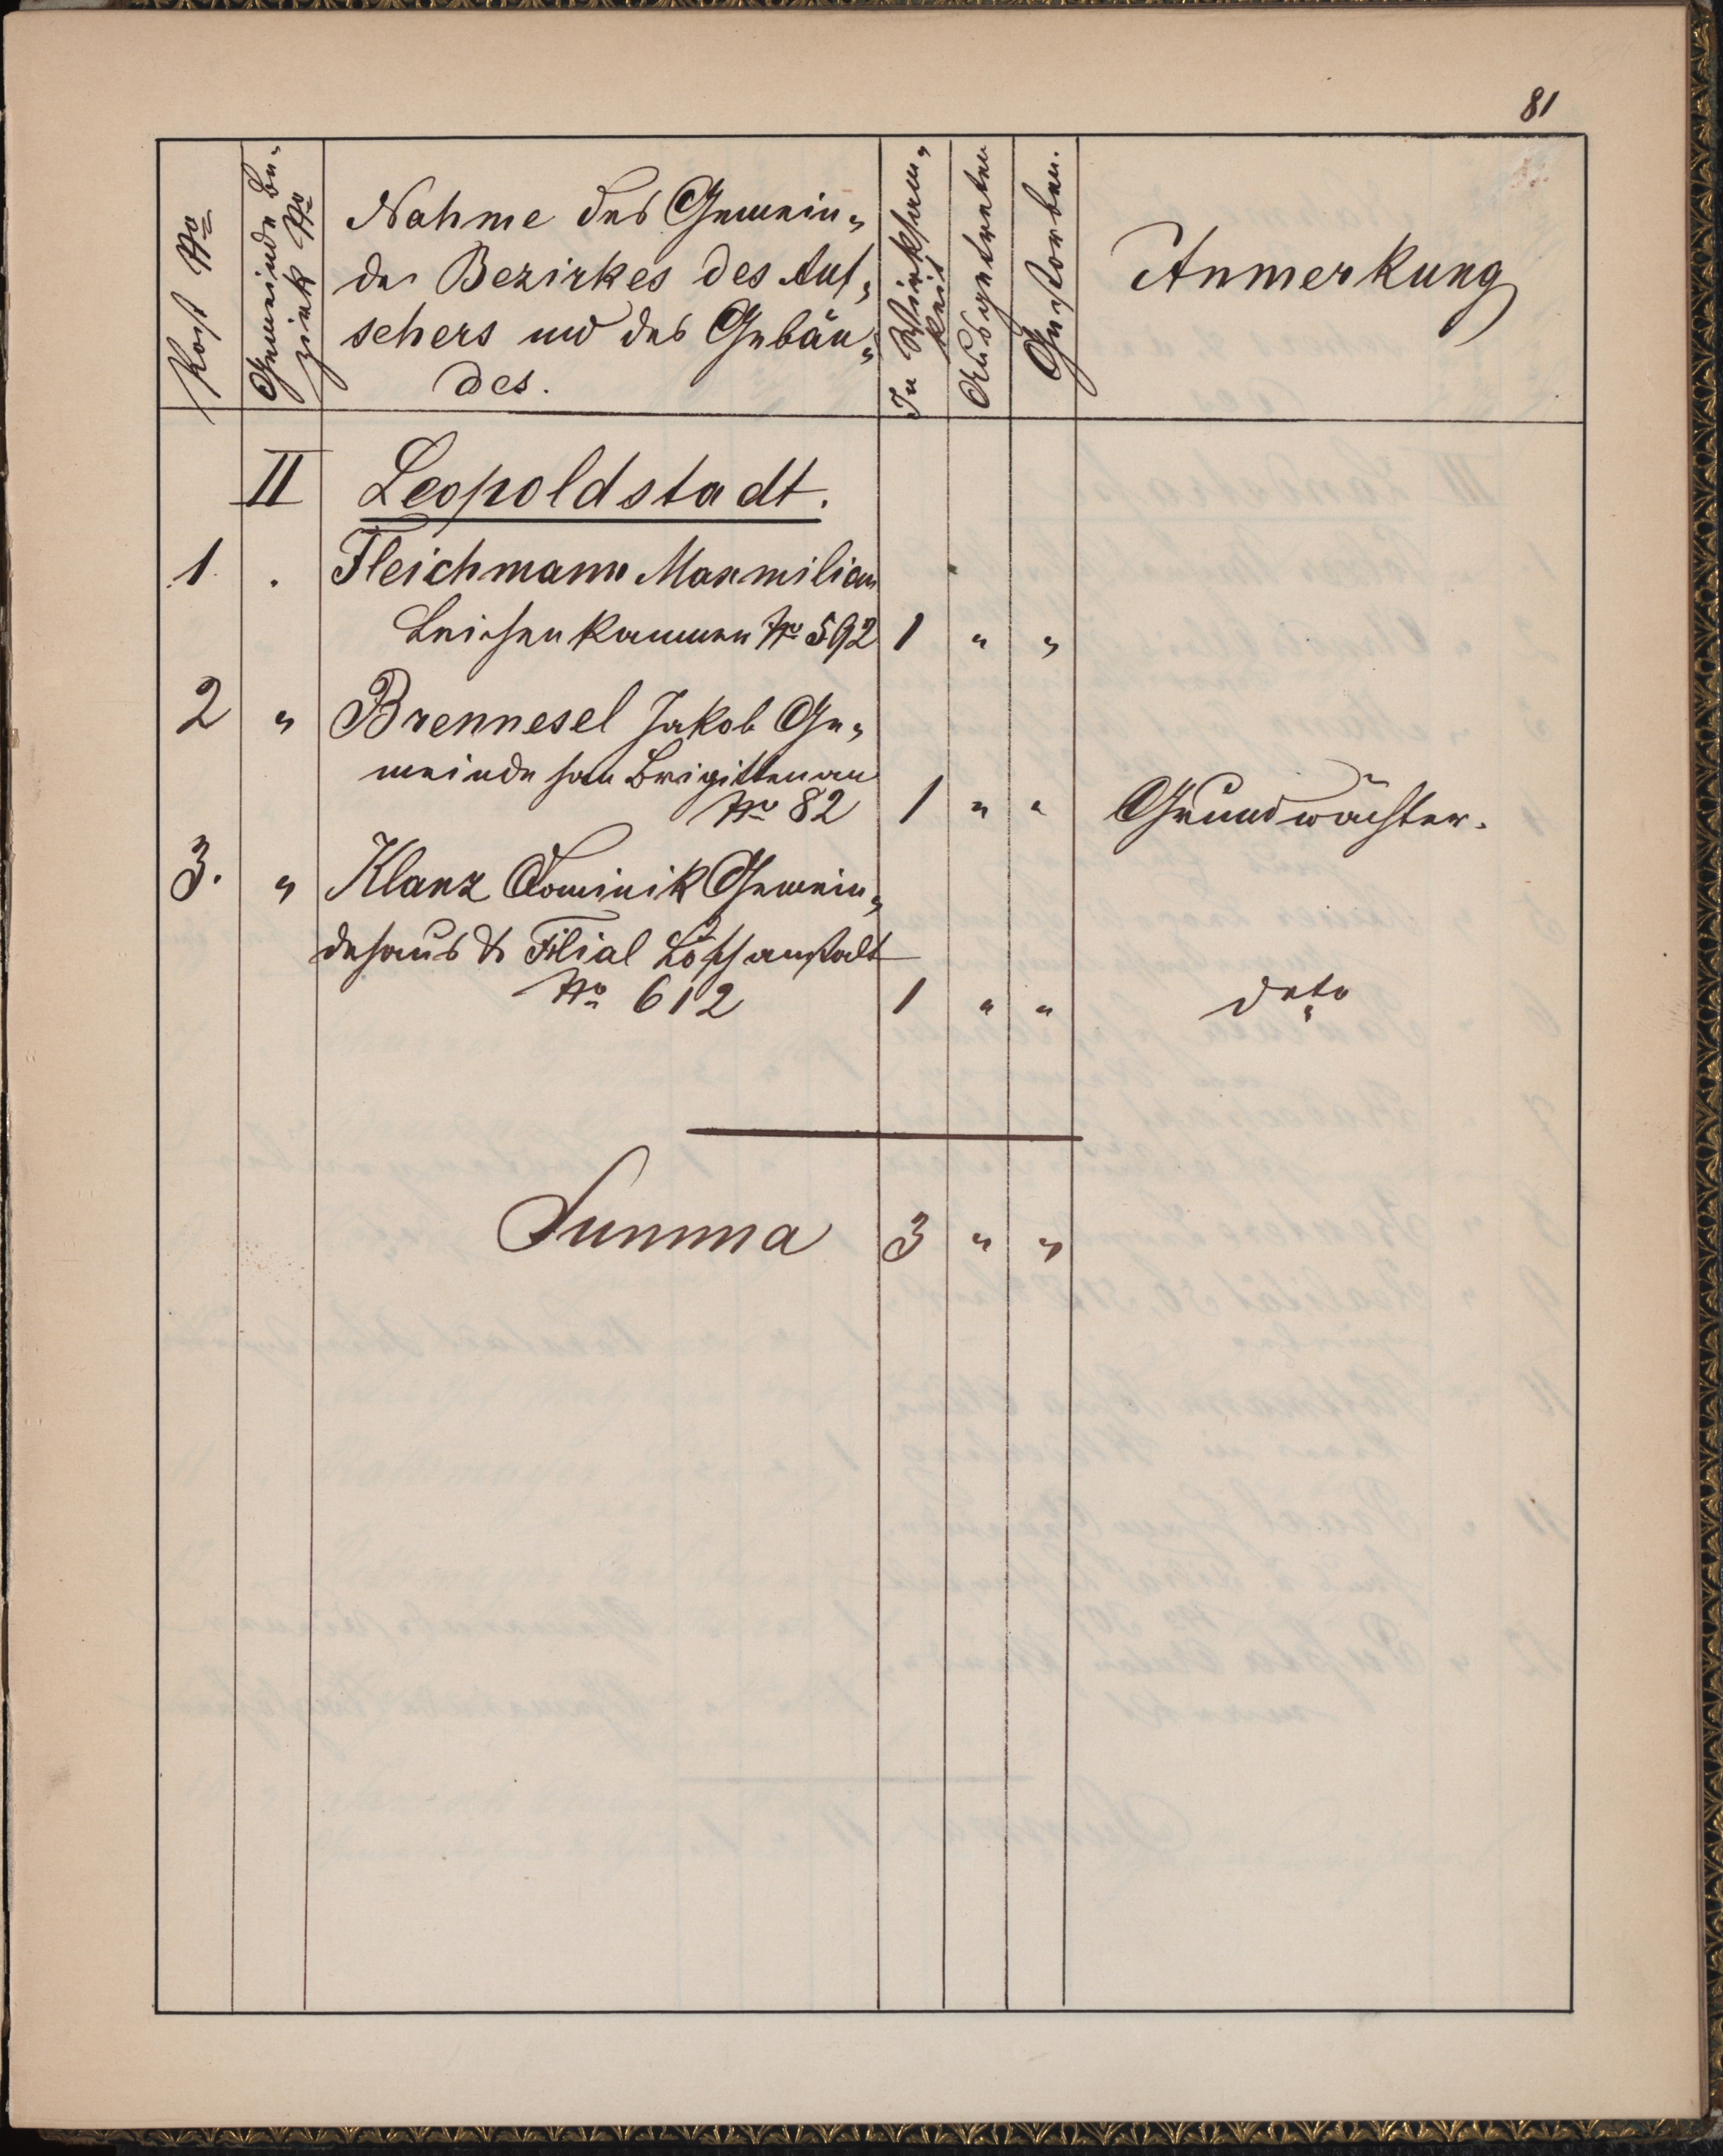 81
Post No
Gemeinde Be-
zirk No
Nahme des Gemein-
des Bezirkes des Auf-
sehers und des Gebäu-
des.
In Wirksam-
keit
Ausgetreten
Gestorben.
Anmerkung
II Leopoldstadt.
1. . Fleichmann Maxmilian
Leichenkammer No 592 1 " "
2 " Brennesel Jakob Ge-
meindehau Brigittenau
No 82 1 " " Grundwächter.
3. " Klanz Dominik Gemein-
dehaus & Filial Löschanstalt
No 612 1 " " deto
Summa 3 " "